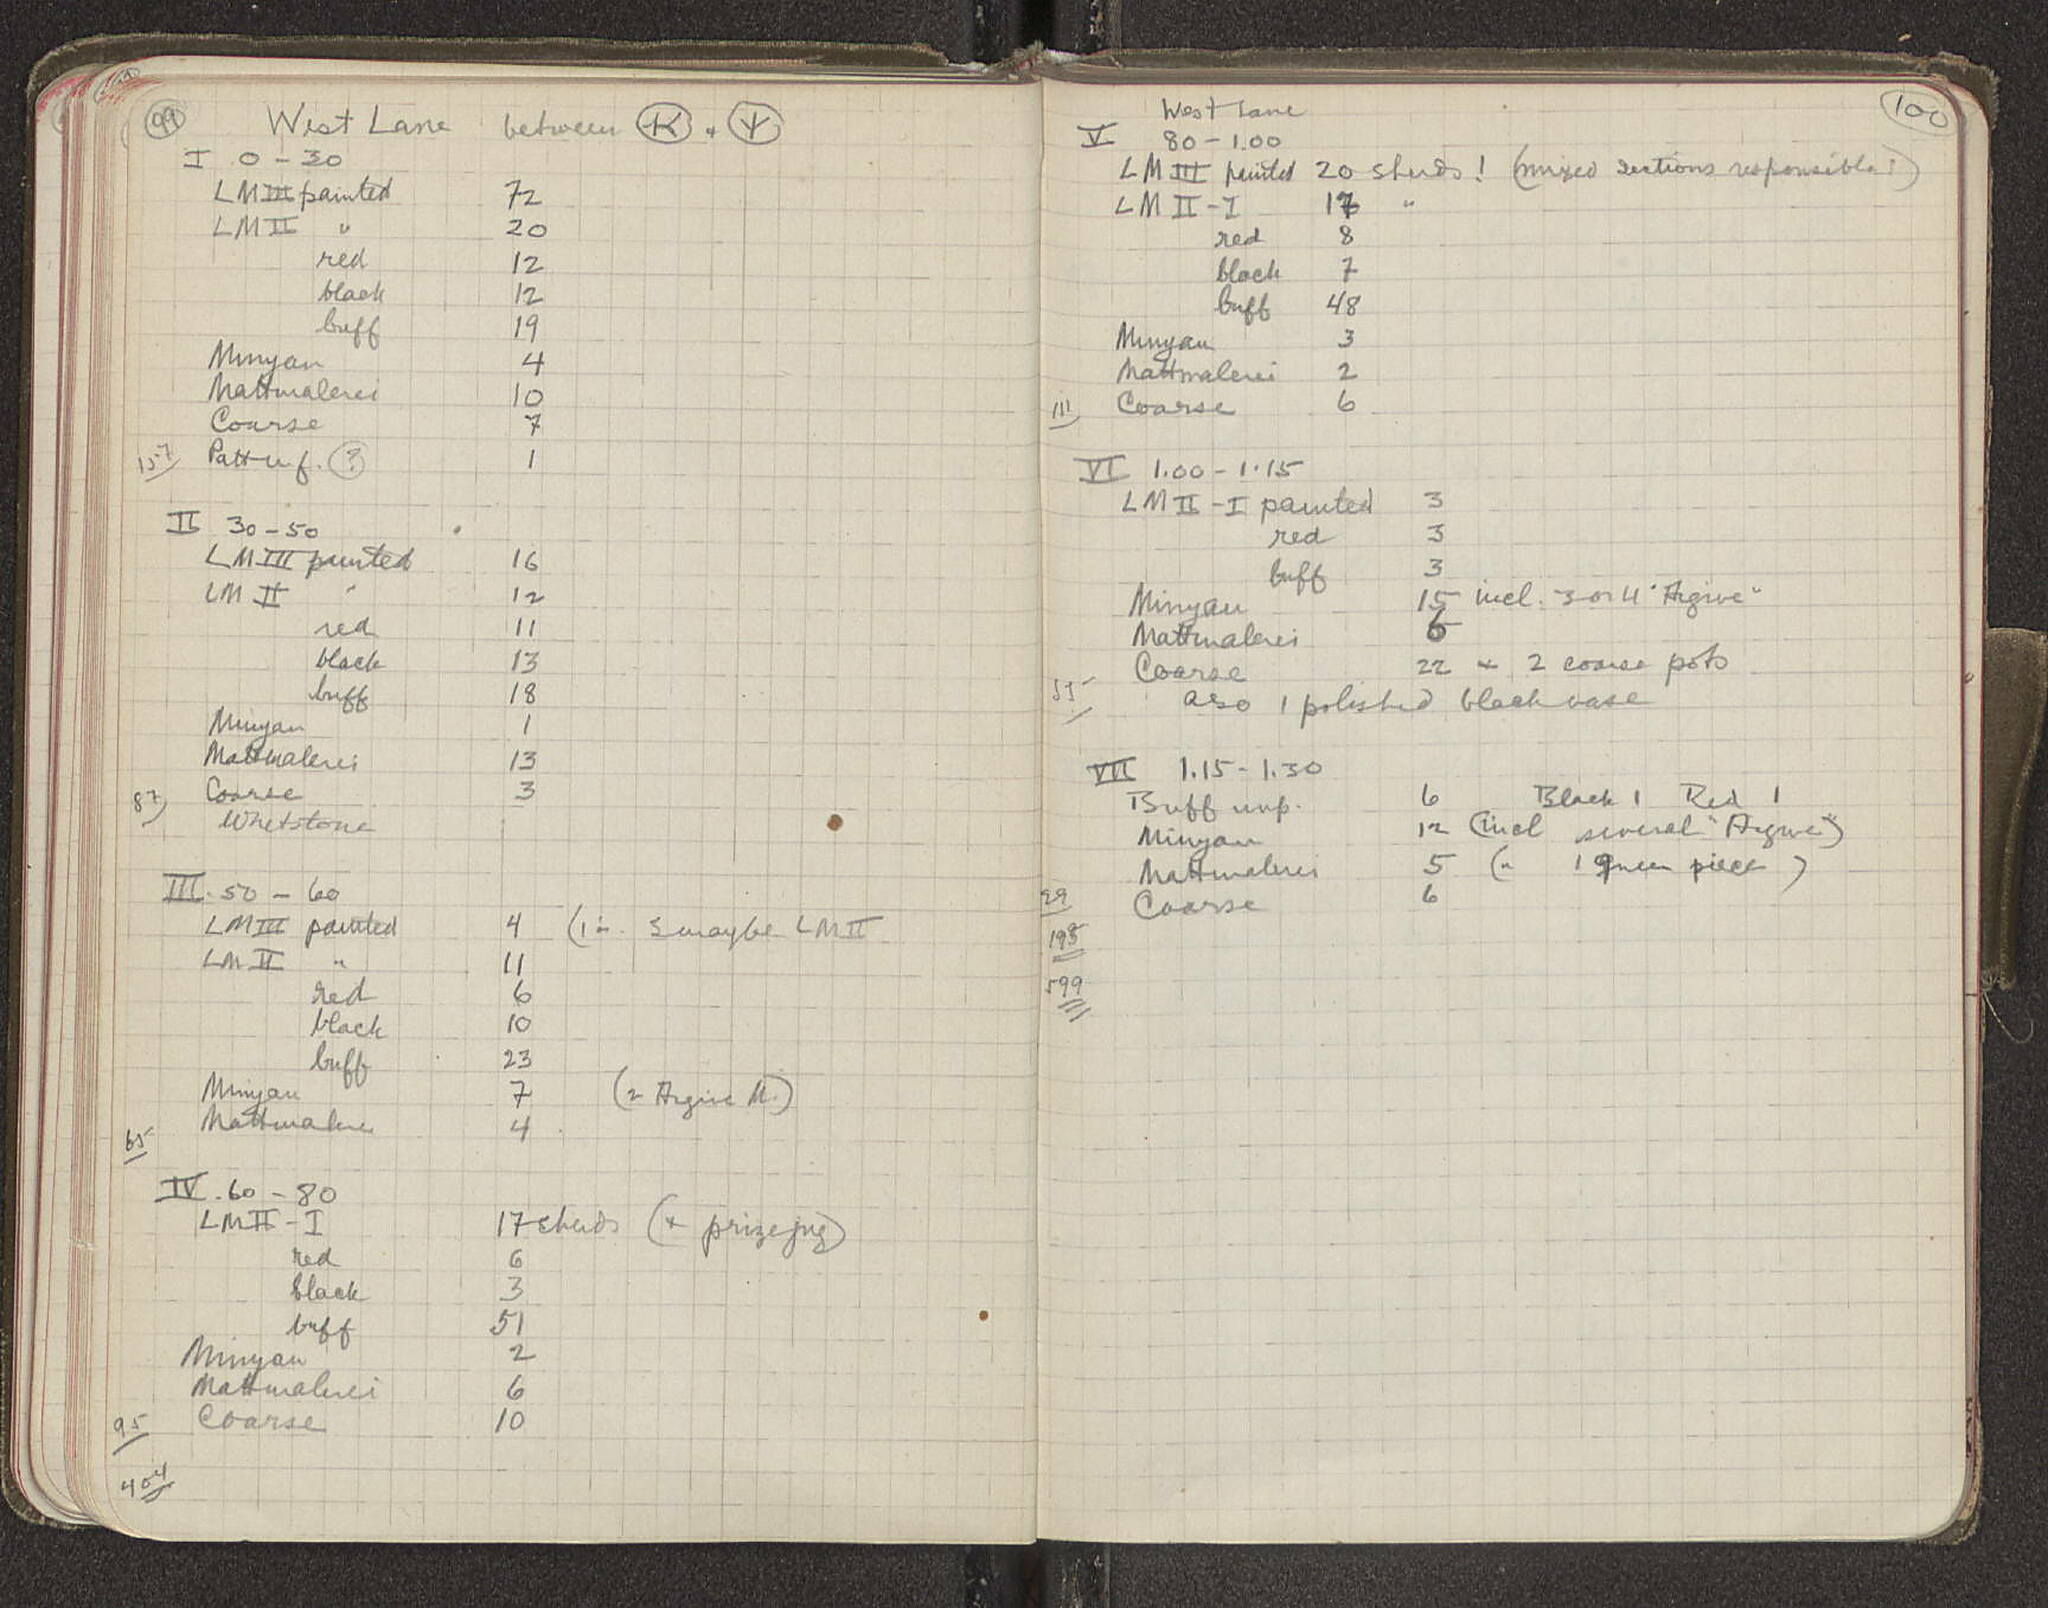 99
West Lane between K + Ψ
I 0 - 30
LM III painted 72
LM II " 20
red 12
black 12
buff 19
Minyan 4
Mattmalerei 10
Coarse 7
157 Patt u.f. ? 1
II 30 - 50
LM III painted 16
LM II " 12
red 11
black 13
buff 18
Minyan 1
Mattmalerei 13
87 Coarse 3
Whetstone
III. 50 - 60
LM III painted 4 ( maybe LM II
LM II " 11
red 6
black 10
buff 23
Minyan 7 (2 Argive M.)
Mattmalerei 4
65
IV .60 - 80
LM II - I 17 sherds (+ prize jug)
red 6
black 3
buff 51
Minyan 2
Mattmalerei 6
95 Coarse 10
404
100
West Lane
V 80 - 1.00
LM III painted 20 sherds! (mixed sections responsible!)
LM II - I 17 "
red 8
black 7
buff 48
Minyan 3
Mattmalerei 2
111 Coarse 6
VI 1.00 - 1.15
LM II - I painted 3
red 3
buff 3
Minyan 15 incl. 3 or 4 "Argive"
Mattmalerei 6
Coarse 22 + 2 coarse pots
55 also 1 polished black vase
VII 1.15 - 1.30
Buff unp. 6 Black 1 Red 1
Minyan 12 (incl several "Argive")
Mattmalerei 5 (" 1 green piece)
29 Coarse 6
195
599